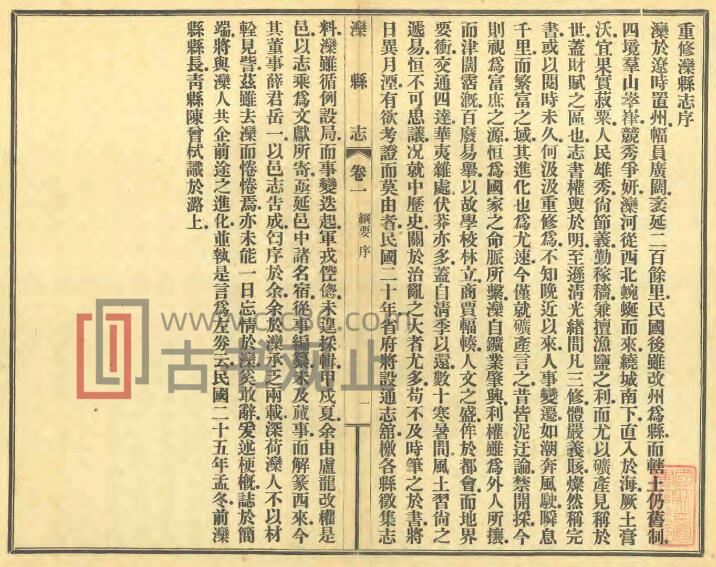 重修灤縣志序
灤於遼時置州幅員廣闊袤延二百餘里民國後雖改州爲縣而轄土仍舊制
四境羣山崒嵂競秀爭妍灤河從西北蜿蜒而來繞城南下直入於海厥土膏
沃宜果實菽粟人民雄秀尙節義勤稼穡兼擅漁鹽之利而尤以礦產見稱於
世蓋財賦之區也志書權輿於明至遜清光緒間凡三修體嚴義賅燦然稱完
書或以閱時未久何汲汲重修爲不知晚近以來人事變遷如潮奔風駛瞬息
千里而繁富之域其進化也爲尤速今僅就礦產言之昔皆泥迂論禁開採今
則視爲富庶之源恒爲國家之命脈所繫灤自鑛業肇興利權雖爲外人所攘
而津闓霑溉百廢易舉以故學校林立商賈輻輳人文之盛侔於都會而地界
要衝交通四達華夷雜處伏莽亦多蓋自清季以還數十寒暑間風土習尙之
遞易恒不可思議况就中歷史關於治亂之大者尤多苟不及時筆之於書將
日異月湮有欲考證而莫由者民國二十年省府將設通志舘檄各縣徵集志
灤縣志
卷一
綱要 序
一
料灤雖循例設局而事變迭起軍戎倥傯未遑採輯甲戌夏余由盧龍改權是
邑以志乘爲文獻所寄亟延邑中諸名宿從事編纂未及蕆事而解篆西來今
其董事薛君岳一以邑志告成匄序於余余於灤承乏兩載深荷灤人不以材
輇見訾茲雖去灤而惓惓焉亦未能一日忘情於灤奚敢辭爰述梗槪誌於簡
端將與灤人共企前途之進化並執是言爲左劵云民國二十五年孟冬前灤
縣縣長靑縣陳曾栻識於潞上
www.cfc86.com
古籍網止